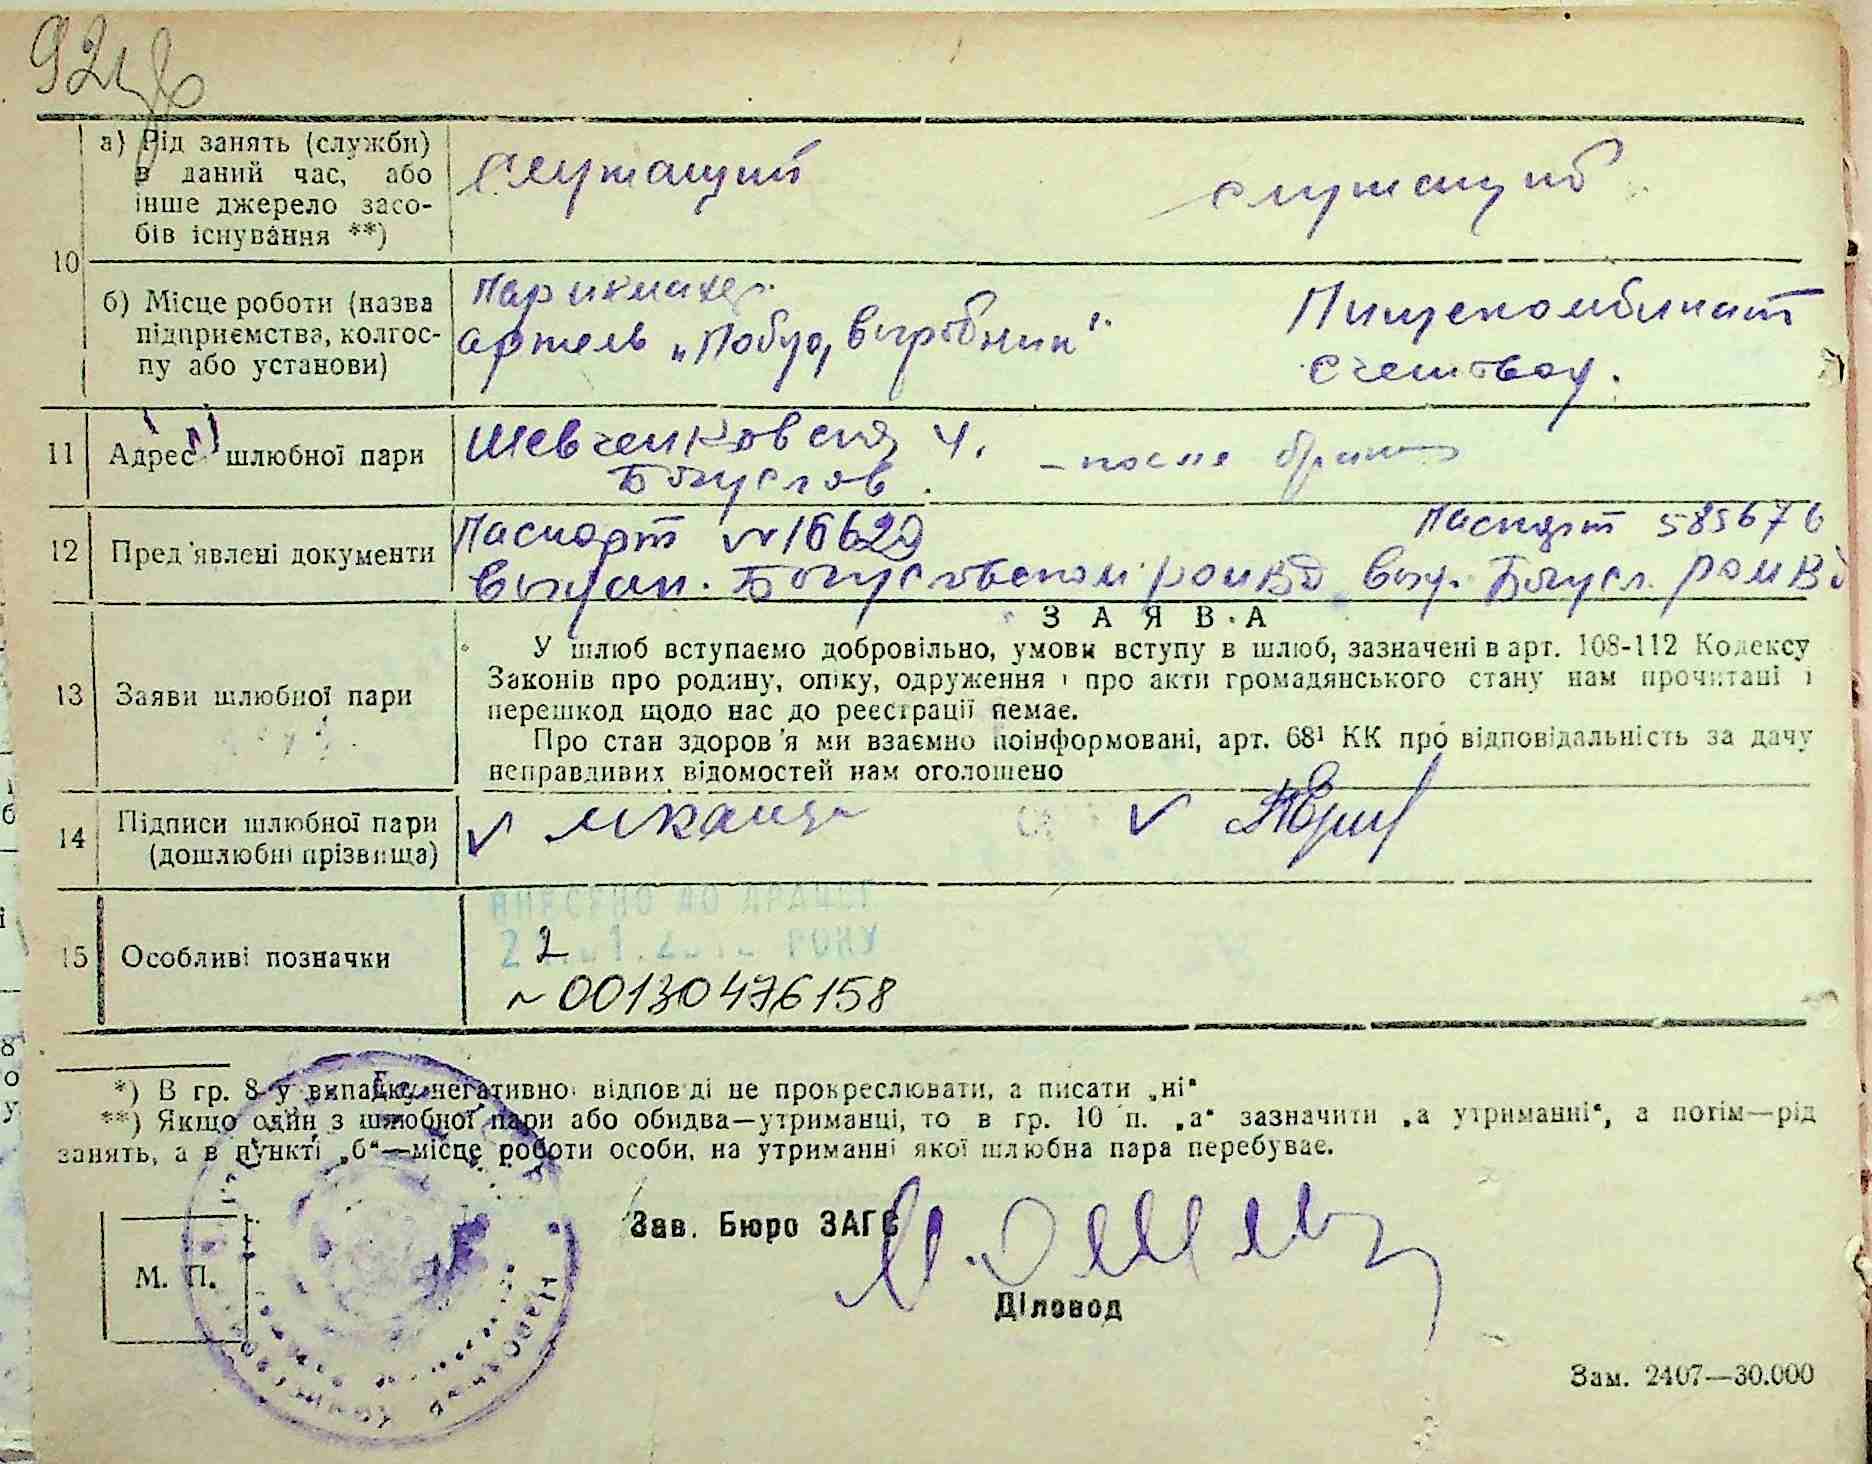 92
а) Рід занять (служби)
в даний час, або
інше джерело засо-
бів існування **)
Служащий
служащий
10
б) Місце роботи (назва
підприємства, колгос-
пу або установи)
Парикмахер
артель „Побут,
Пищекомбинат
счетовод.
11 Адрес шлюбної пари
Шевченковская 4. – после брака
Богуслов.
12 Пред'явлені документи
Паспорт №16620 Паспорт 585676
выдан. Богуславском РОМВД выд. Богусл. РОМВД
З А Я В А
13 Заяви шлюбної пари
У шлюб вступаємо добровільно, умови вступу в шлюб, зазначені в арт. 108-112 Кодексу
Законів про родину, опіку, одруження і про акти громадянського стану нам прочитані і
перешкод щодо нас до реєстрації немає.
Про стан здоров'я ми взаємно поінформовані, арт. 68¹ КК про відповідальність за дачу
неправдивих відомостей нам оголошено
14 Підписи шлюбної пари
(дошлюбні прізвища)
ВНЕСЕНО ДО ДРАЦСГ
РОКУ
15 Особливі позначки
~00130476158
*) В гр. 8 у випадку негативної відповіді не прокреслювати, а писати „ні“
**) Якщо один з шлюбної пари або обидва—утриманці, то в гр. 10 п. „а“ зазначити „а утриманні“, а потім—рід
занять, а в пункті „б“—місце роботи особи, на утриманні якої шлюбна пара перебуває.
Зав. Бюро ЗАГС
М. П.
Діловод
Зам. 2407—30.000